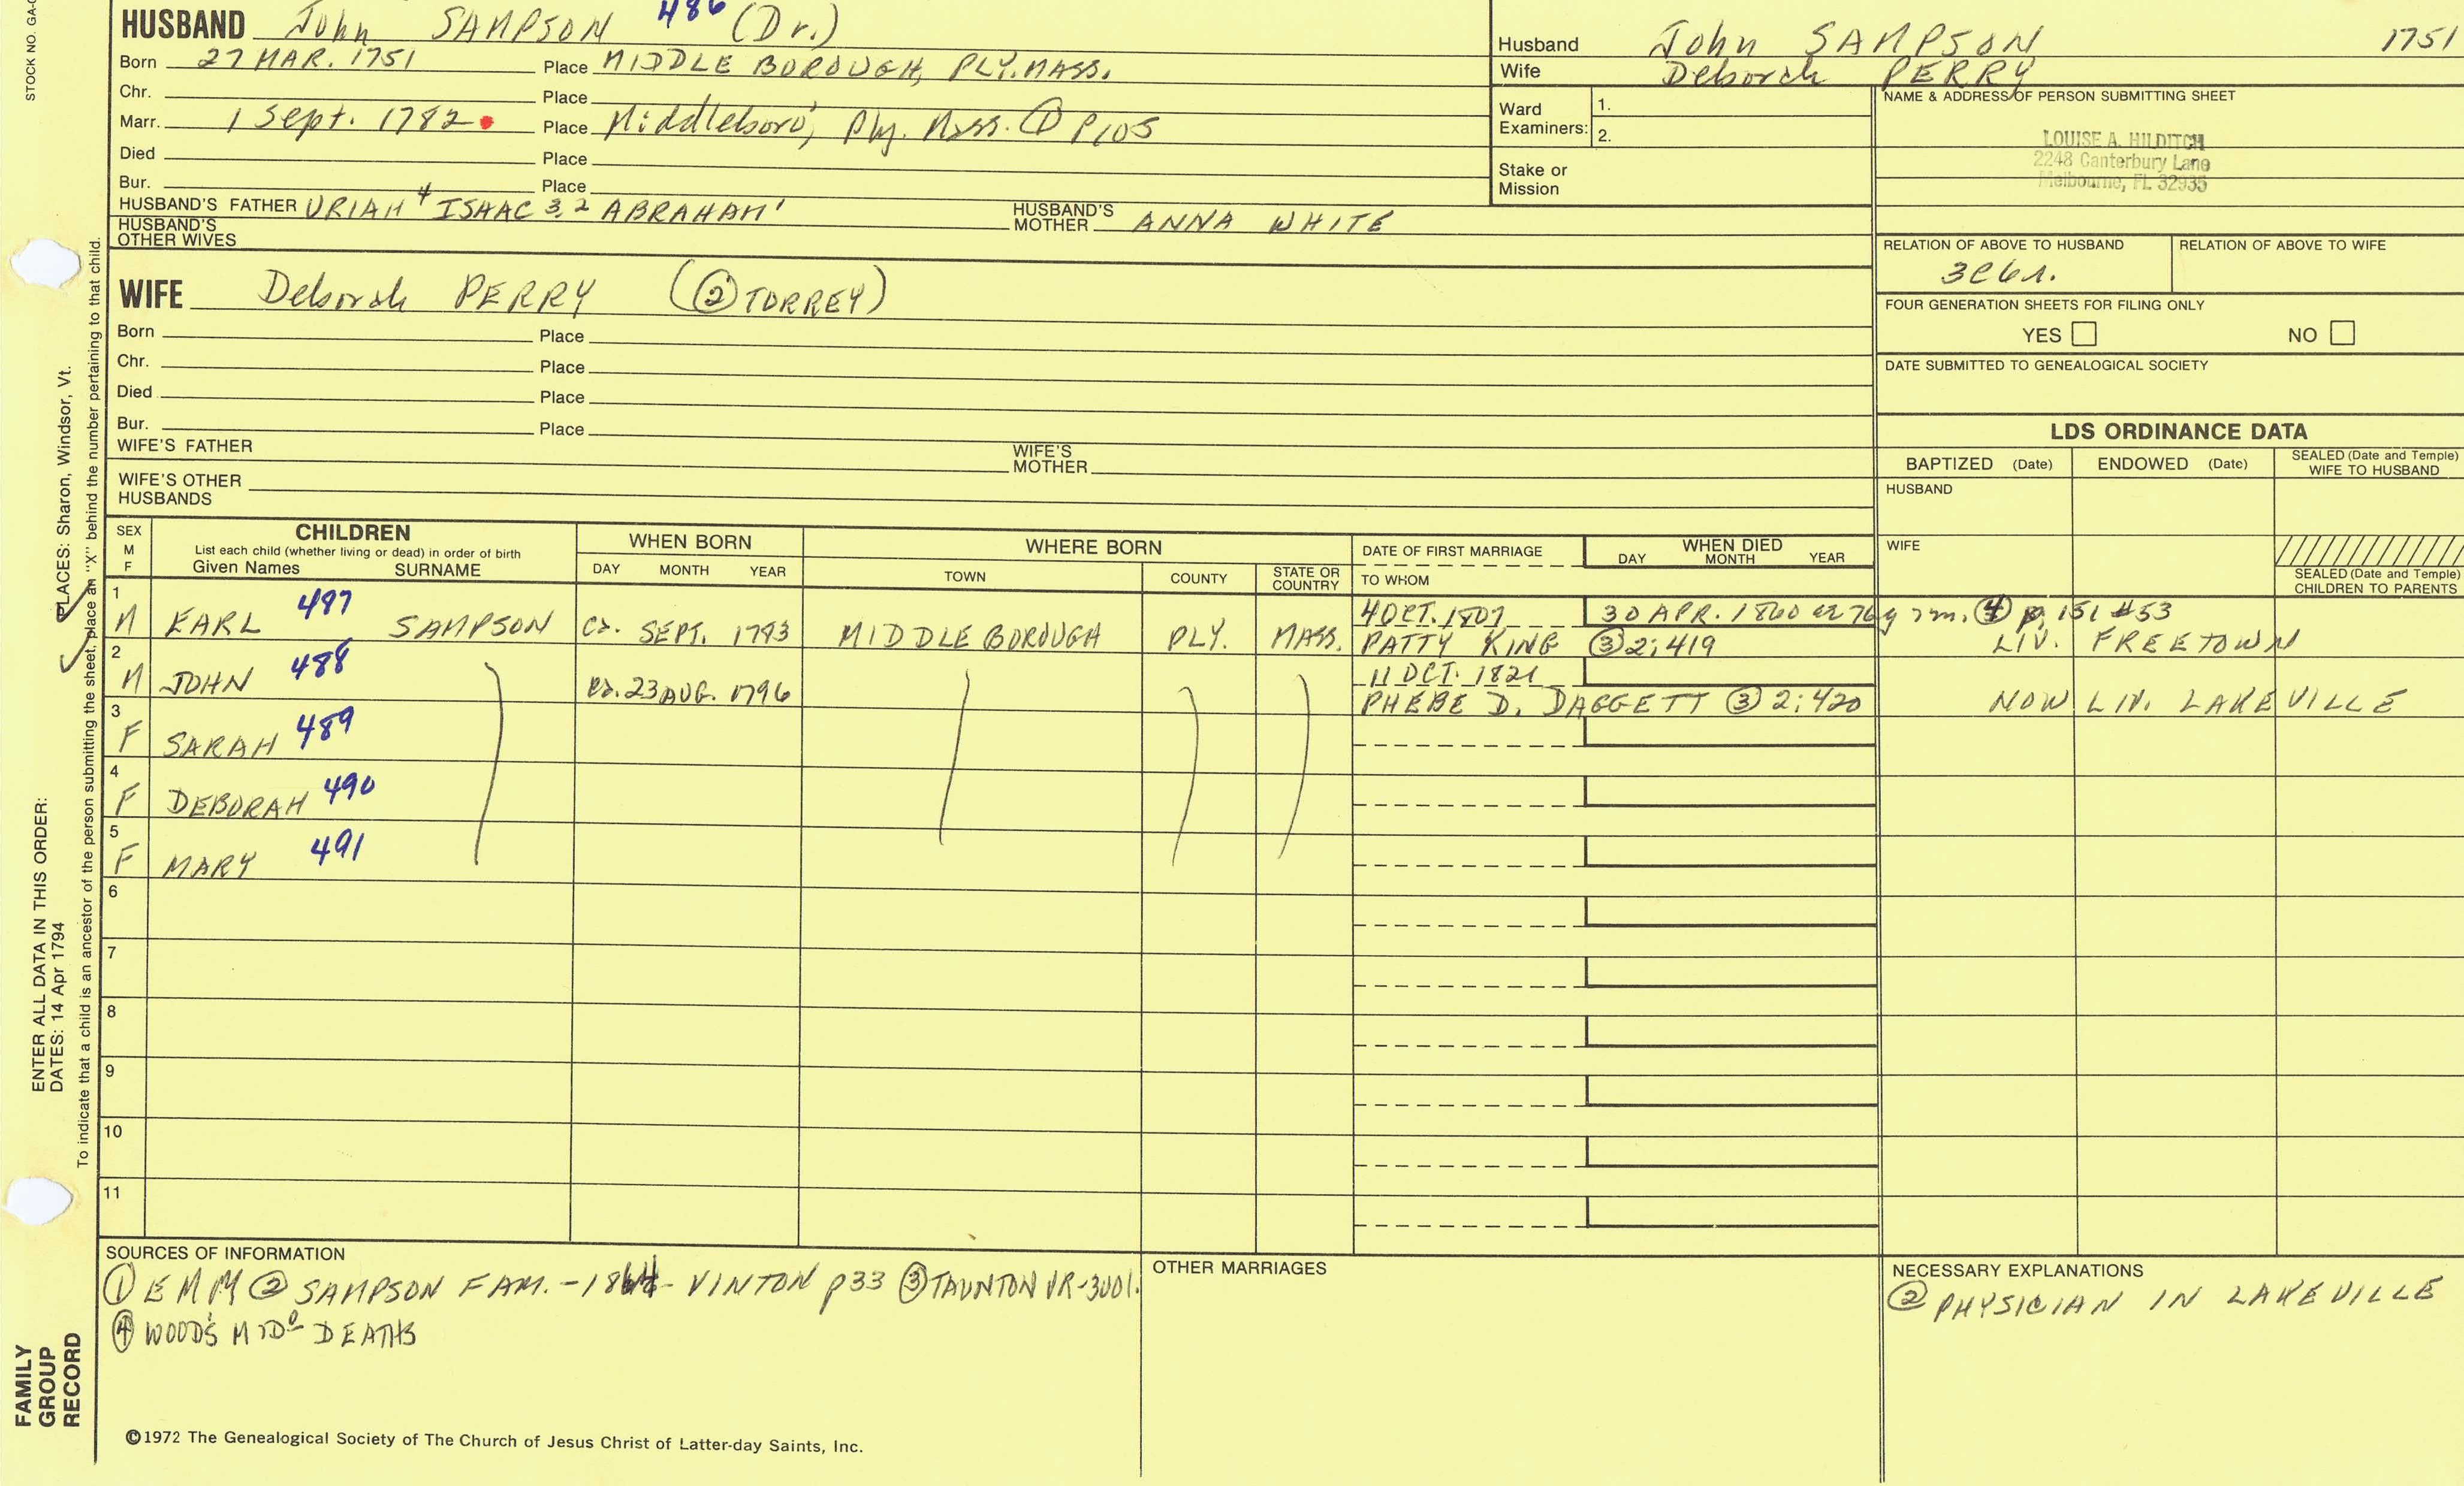 HUSBAND John SAMPSON 486 (Dr.)
Born 27 MAR. 1751 Place MIDDLE BOROUGH, PLY. MASS.
Chr. Place
Marr. 1 Sept. 1782 Place Middleboro, Ply. Mass. ① P105
Died Place
Bur. Place
HUSBAND'S FATHER URIAH 4 ISAAC 3,2 ABRAHAM 1 HUSBAND'S MOTHER ANNA WHITE
HUSBAND'S OTHER WIVES
Husband John SAMPSON 1751
Wife Deborah PERRY
Ward Examiners: 1.
2.
Stake or Mission
NAME & ADDRESS OF PERSON SUBMITTING SHEET
LOUISE A. HILDITCH
2248 Canterbury Lane
Melbourne, FL 32935
RELATION OF ABOVE TO HUSBAND RELATION OF ABOVE TO WIFE
3C6r.
FOUR GENERATION SHEETS FOR FILING ONLY
YES NO
DATE SUBMITTED TO GENEALOGICAL SOCIETY
WIFE Deborah PERRY (② TORREY)
Born Place
Chr. Place
Died Place
Bur. Place
WIFE'S FATHER WIFE'S MOTHER
WIFE'S OTHER HUSBANDS
LDS ORDINANCE DATA
BAPTIZED (Date) ENDOWED (Date) SEALED (Date and Temple) WIFE TO HUSBAND
HUSBAND
WIFE
SEALED (Date and Temple) CHILDREN TO PARENTS
SEX M F
CHILDREN
List each child (whether living or dead) in order of birth
Given Names SURNAME
WHEN BORN
DAY MONTH YEAR
WHERE BORN
TOWN COUNTY STATE OR COUNTRY
DATE OF FIRST MARRIAGE
TO WHOM
WHEN DIED
DAY MONTH YEAR
1 M EARL 487 SAMPSON Ca. SEPT. 1783 MIDDLE BOROUGH PLY. MASS. 4 OCT. 1807 30 APR. 1860 ae 76y 7m. ④ p. 151 #53
PATTY KING ③ 2:419 LIV. FREETOWN
2 M JOHN 488 Ca. 23 AUG. 1796 11 OCT. 1821
PHEBE D. DAGGETT ③ 2:420 NOW LIV. LAKEVILLE
3 F SARAH 489
4 F DEBORAH 490
5 F MARY 491
6
7
8
9
10
11
SOURCES OF INFORMATION
① EMM ② SAMPSON FAM. -1864- VINTON p33 ③ TAUNTON VR-3001.
④ WOOD'S MIDO DEATHS
OTHER MARRIAGES
NECESSARY EXPLANATIONS
② PHYSICIAN IN LAKEVILLE
©1972 The Genealogical Society of The Church of Jesus Christ of Latter-day Saints, Inc.
STOCK NO. GA-
PLACES: Sharon, Windsor, Vt.
ENTER ALL DATA IN THIS ORDER:
DATES: 14 Apr 1794
To indicate that a child is an ancestor of the person submitting the sheet, place an "X" behind the number pertaining to that child.
FAMILY
GROUP
RECORD